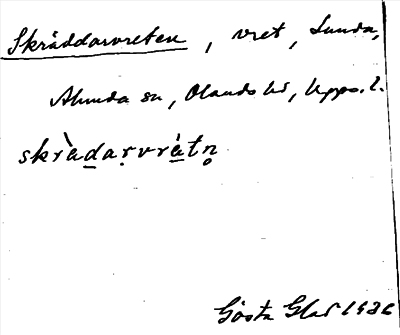 Skräddarvreten, vret, Sunda,
Alunda sn, Olands hd, Upps. l.
skràdaṛvrétṇ
Gösta Glad 1936